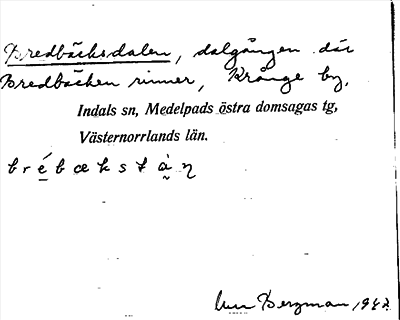 Bredbäcksdalen, dalgången där
Bredbäcken rinner, Krånge by,
Indals sn, Medelpads östra domsagas tg,
Västernorrlands län.
Bergman 1942